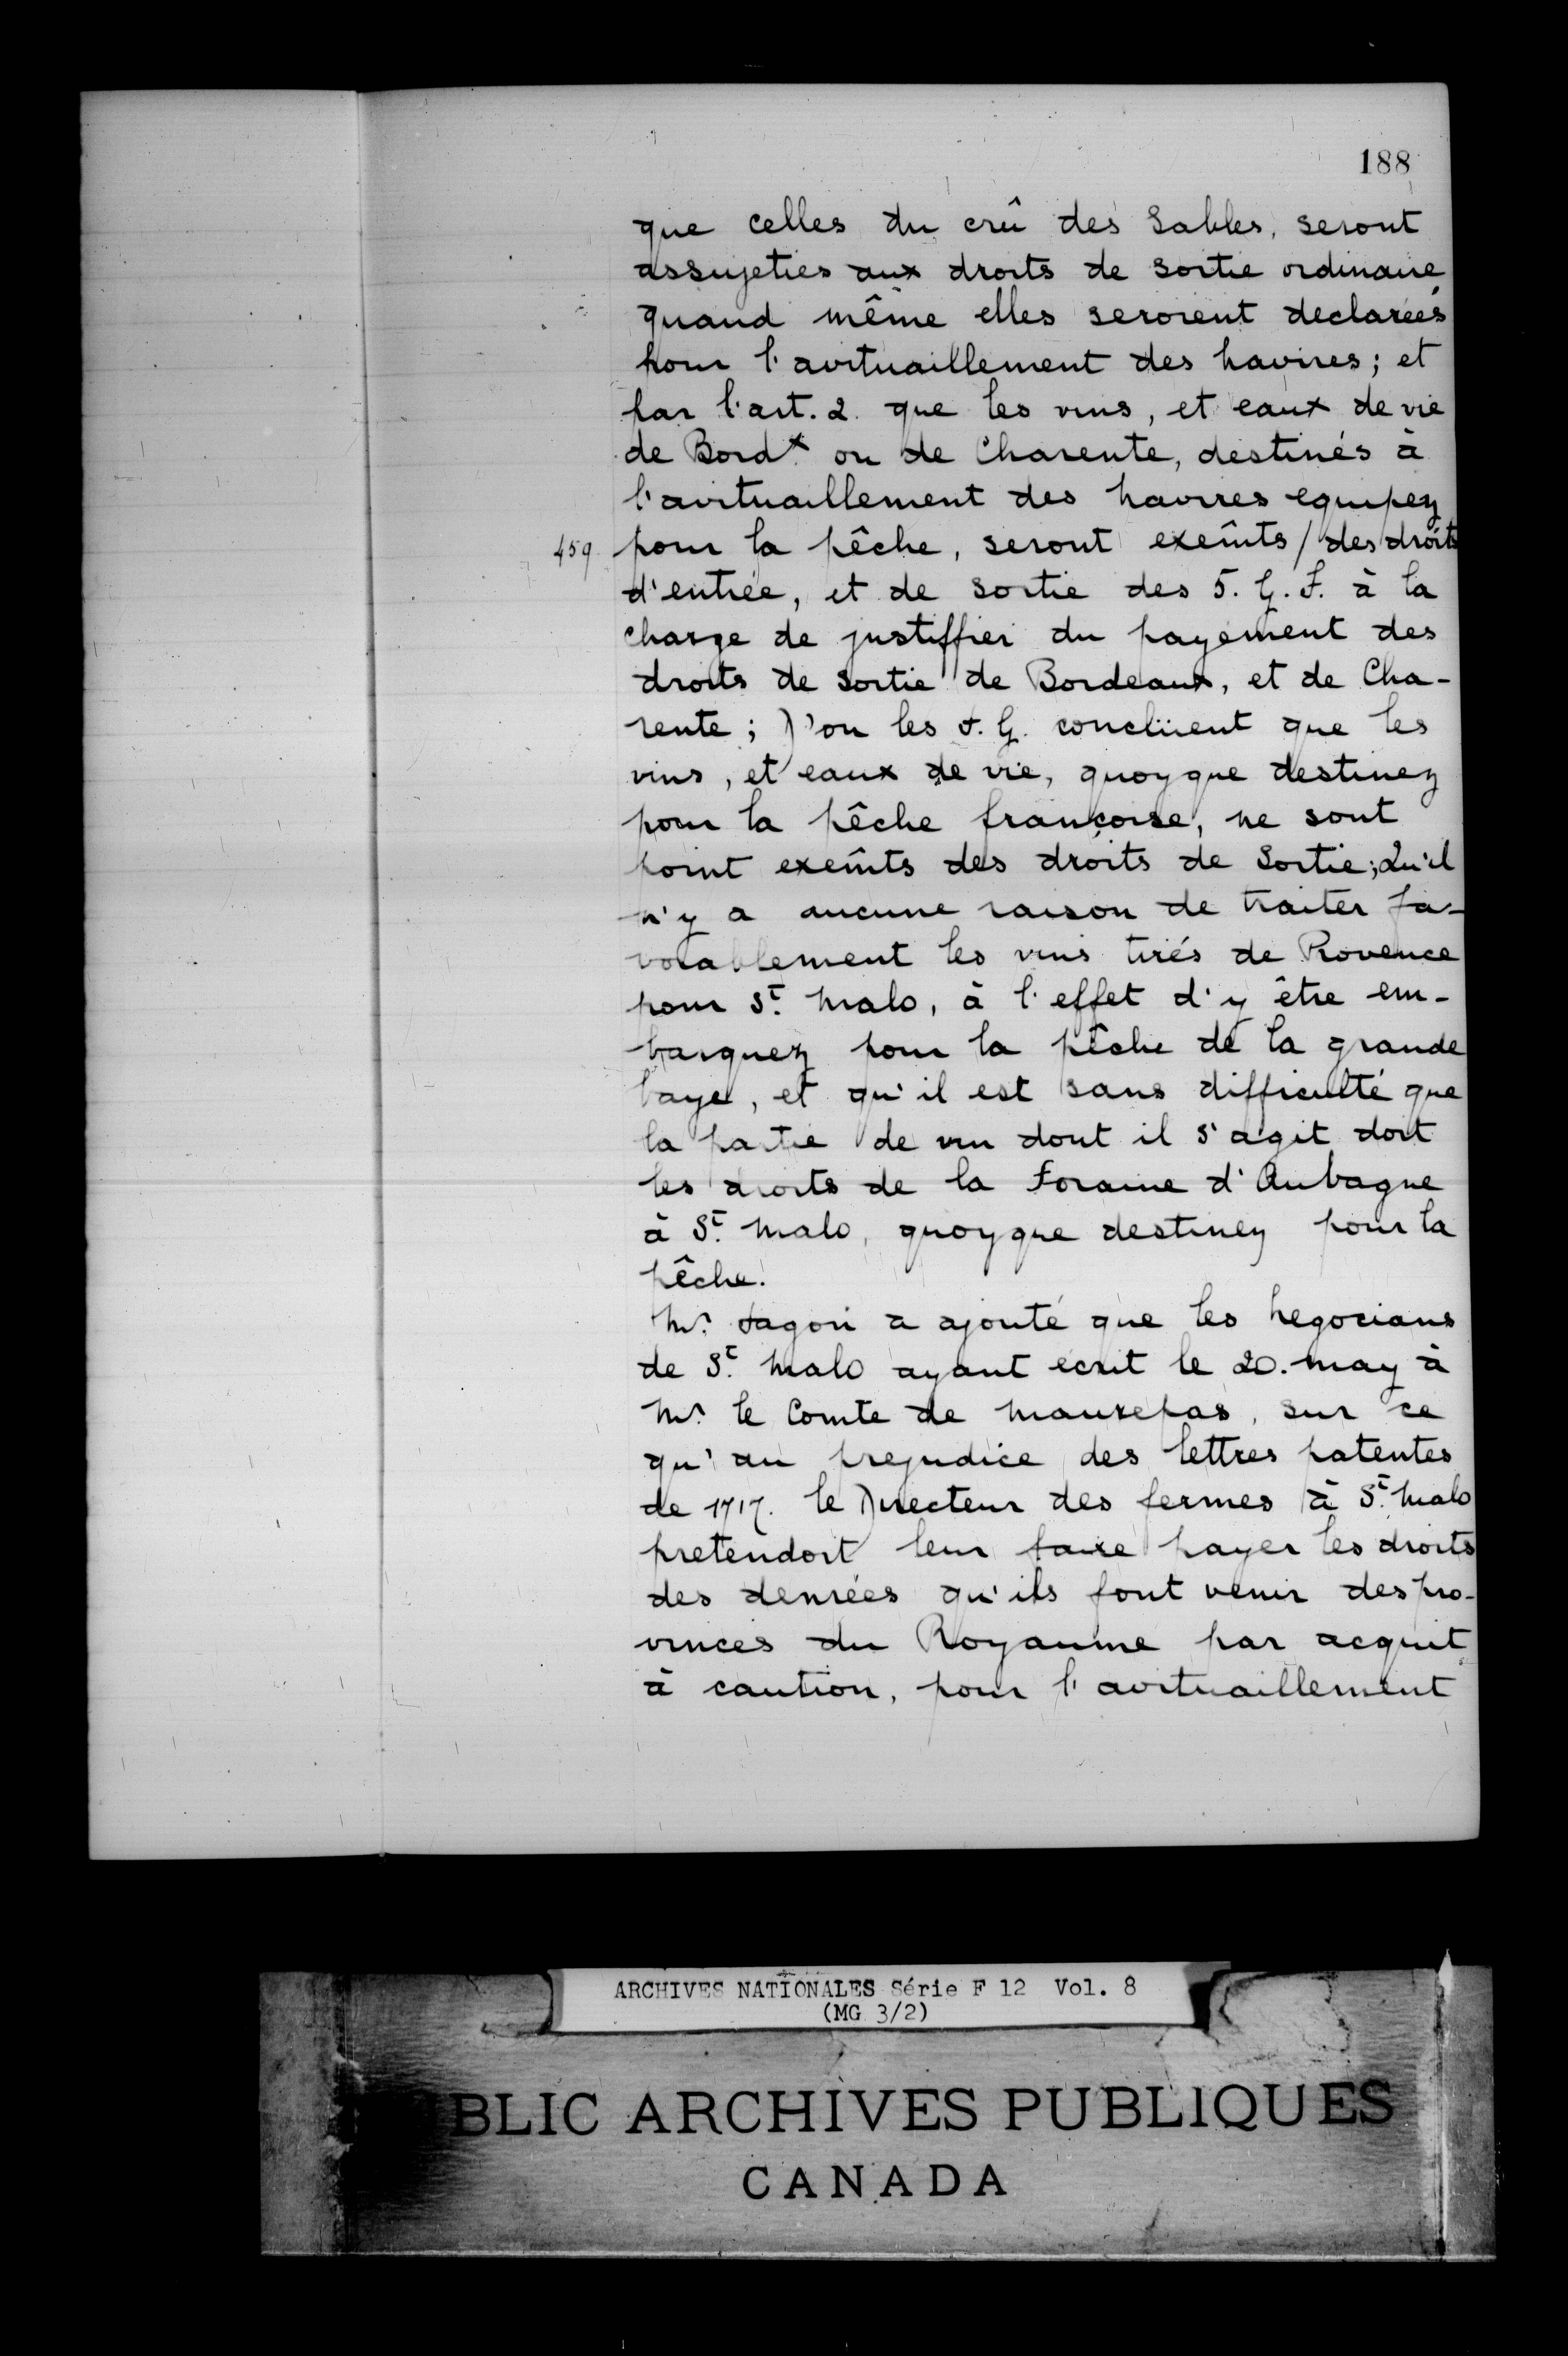 188
que celles du crû des Sables, seront
assujeties aux droits de sortie ordinaire,
quand même elles seroient declareés
pour l'avituaillement des navires; et
par l'art. 2. que les vins, et eaux de vie
de Bordx ou de Charente, destinés à
l'avituaillement des navires equipez
459 pour la pêche, seront exemts / des droits
d'entrée, et de sortie des 5. G. F. à la
charge de justiffier du payement des
droits de sortie de Bordeaux, et de Cha-
rente; D'ou les F. G. concluent que les
vins, et eaux de vie, quoyque destinez
pour la pêche françoise, ne sont
point exemts des droits de Sortie; Qu'il
n'y a aucune raison de traiter fa-
vorablement les vins tirés de Provence
pour St. Malo, à l'effet d'y être em-
barquez pour la pêche de la grande
baye, et qu'il est sans difficulté que
la partie de vin dont il s'agit doit
les droits de la Foraine d'Aubagne
à St. Malo, quoyque destinez pour la
pêche.
Mr. Fagon a ajouté que les Negocians
de St. Malo ayant ecrit le 20. may à
Mr. le Comte de Maurepas, sur ce
qu'au prejudice des lettres patentes
de 1717. le Directeur des fermes à St. Malo
pretendoit leur faire payer les droits
des denrées qu'ils font venir des pro-
vinces du Royaume par acquit
à caution, pour l'avituaillement
ARCHIVES NATIONALES Série F 12 Vol. 8
(MG 3/2)
BLIC ARCHIVES PUBLIQUES
CANADA